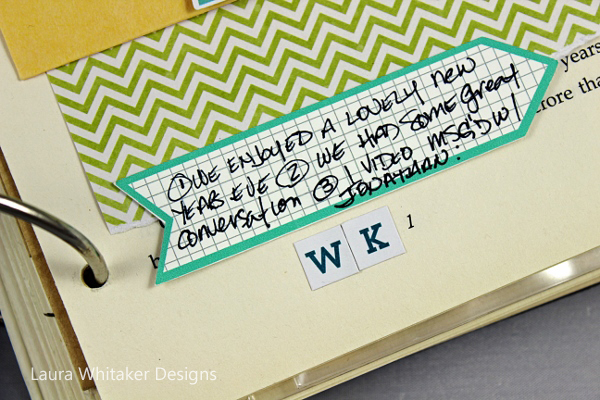 years
fore tha
① WE ENJOYED A LOVELY NEW
YEARS EVE ② WE HAD SOME great
conversation ③ I VIDEO MSG'D W/
JONATHAN!
WK 1
Laura Whitaker Designs